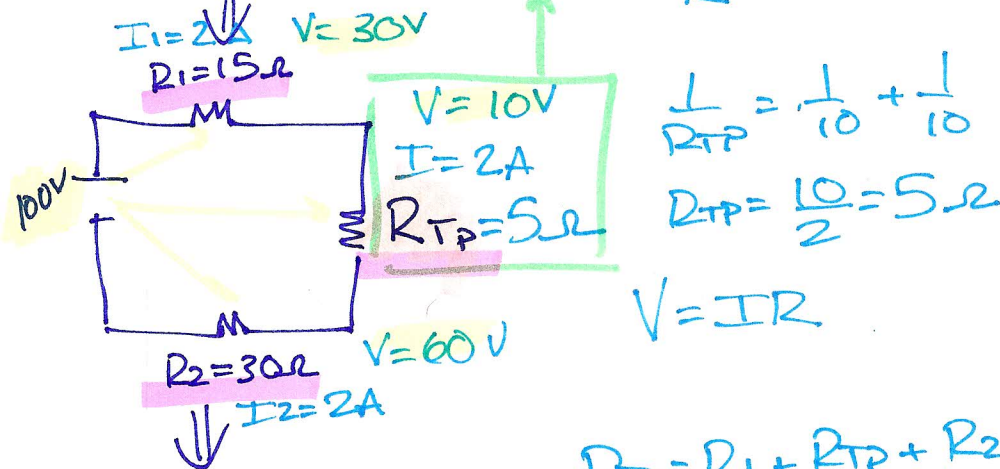 I1=2A V=30V
R1=15Ω
100V
V=10V
I=2A
RTP=5Ω
V=60V
R2=30Ω
I2=2A
1/RTP = 1/10 + 1/10
RTP = 10/2 = 5Ω
V=IR
= R1 + RTP + R2